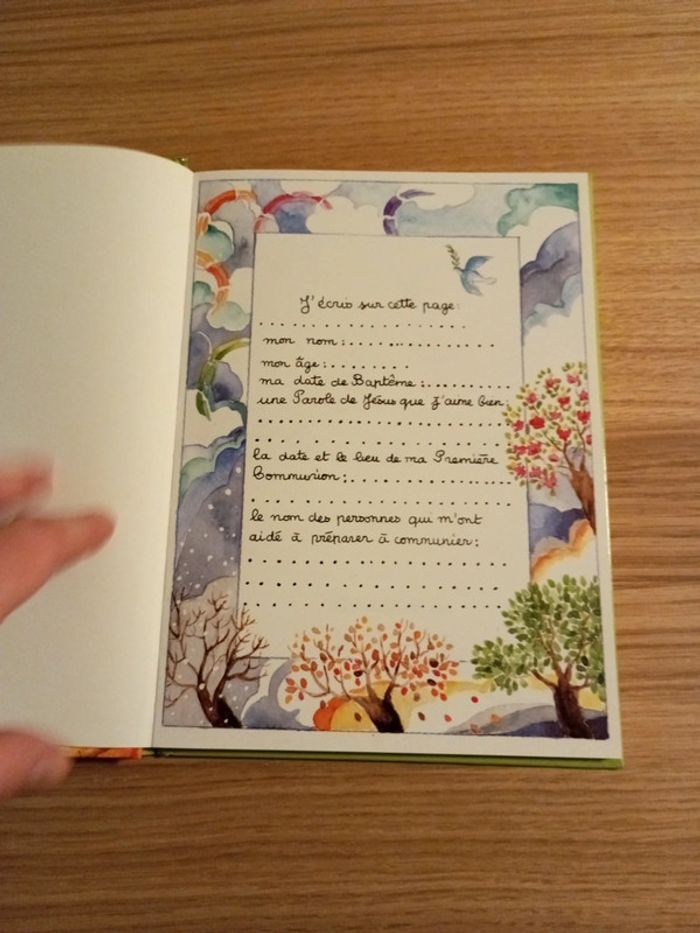 J'écris sur cette page:
mon nom:
mon âge:
ma date de Baptême:
une Parole de Jésus que j'aime bien:
la date et le lieu de ma Première
Communion:
le nom des personnes qui m'ont
aidé à préparer à communier: